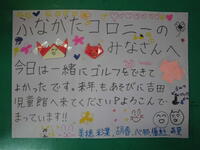 ふながたコロニーの
みなさんへ
今日は一緒にゴルフをできて
よかったです。来年、もあそびに吉田
児童館へ来てください!よろこんで
まっています!!